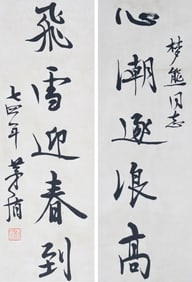 心潮逐浪高
梦熊同志
飛雪迎春到
七四年 茅盾